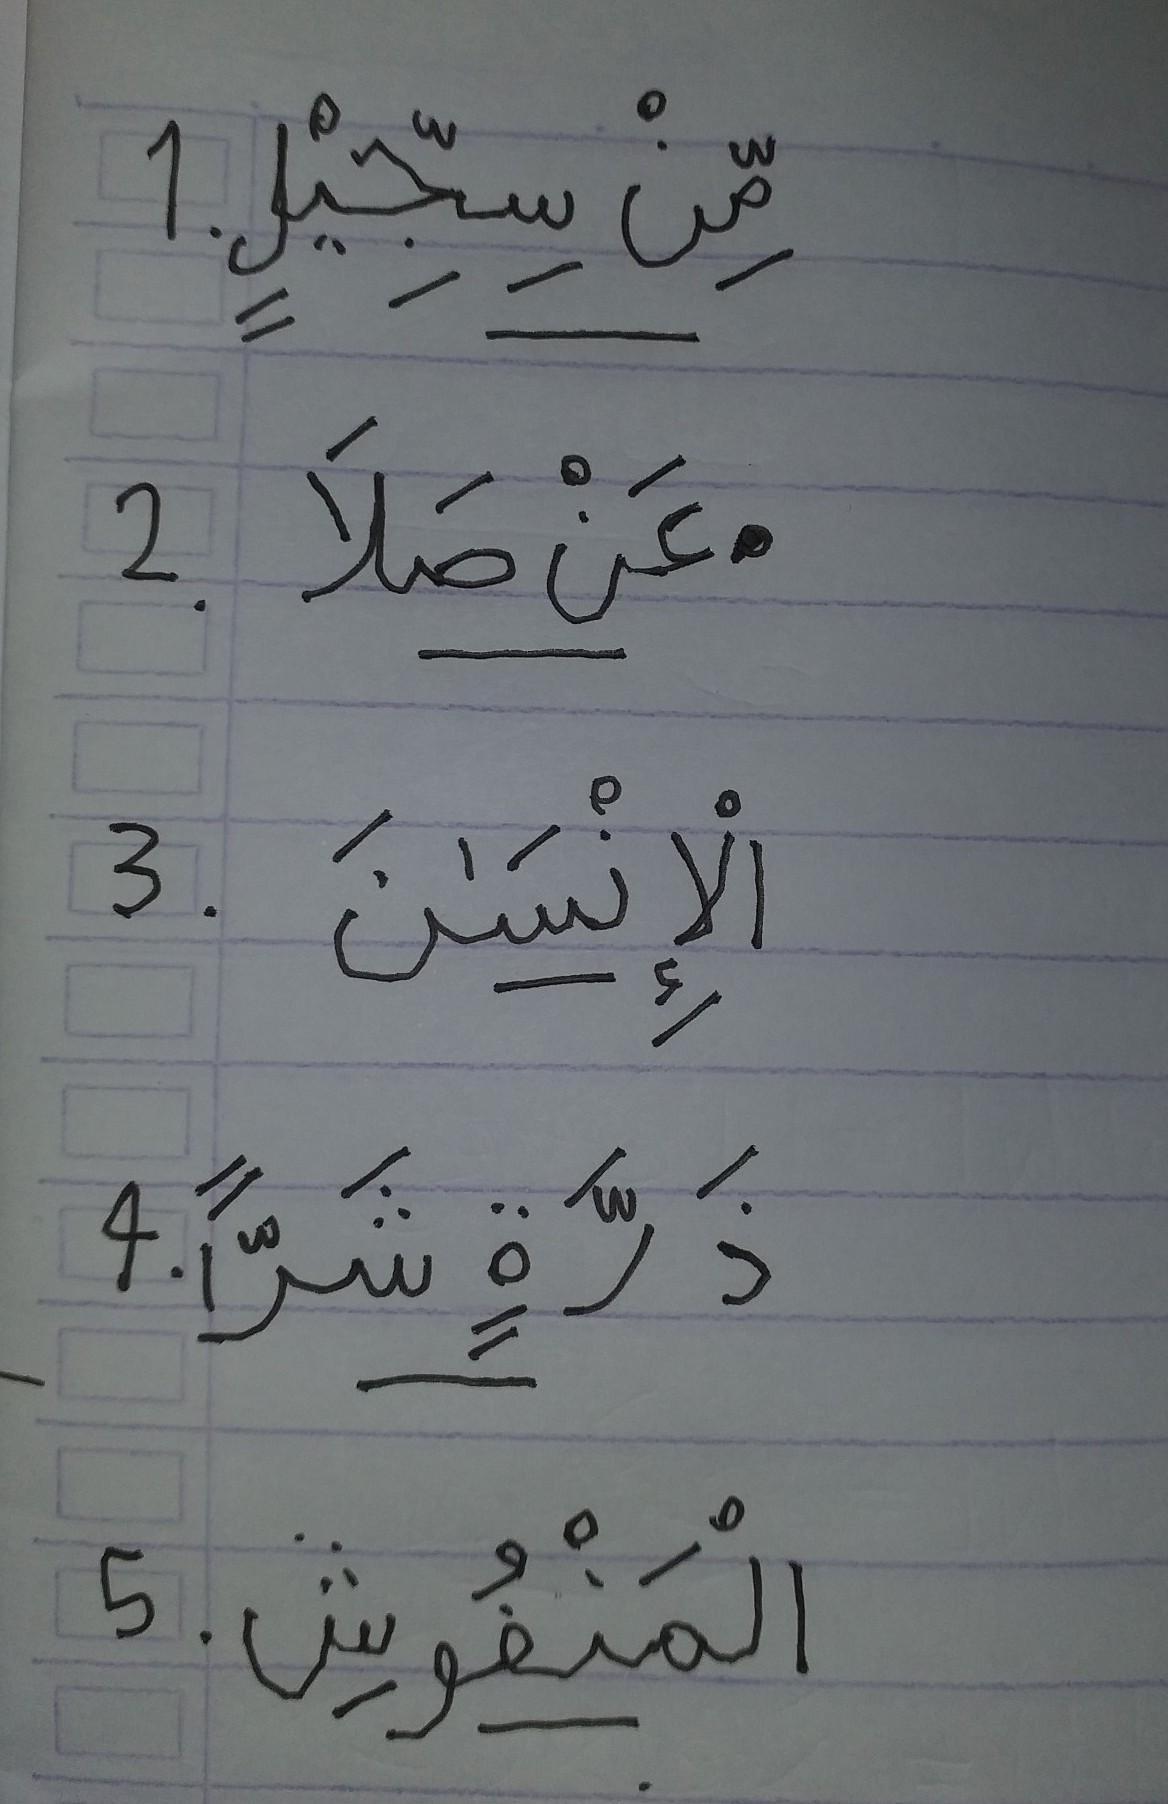 1. مِّنْ سِجِّيْلٍ
2. عَنْ صَلاَ
3. الْإِنْسَٰنَ
4. ذَرَّةٍ شَرًّا
5. الْمَنْفُوشِ